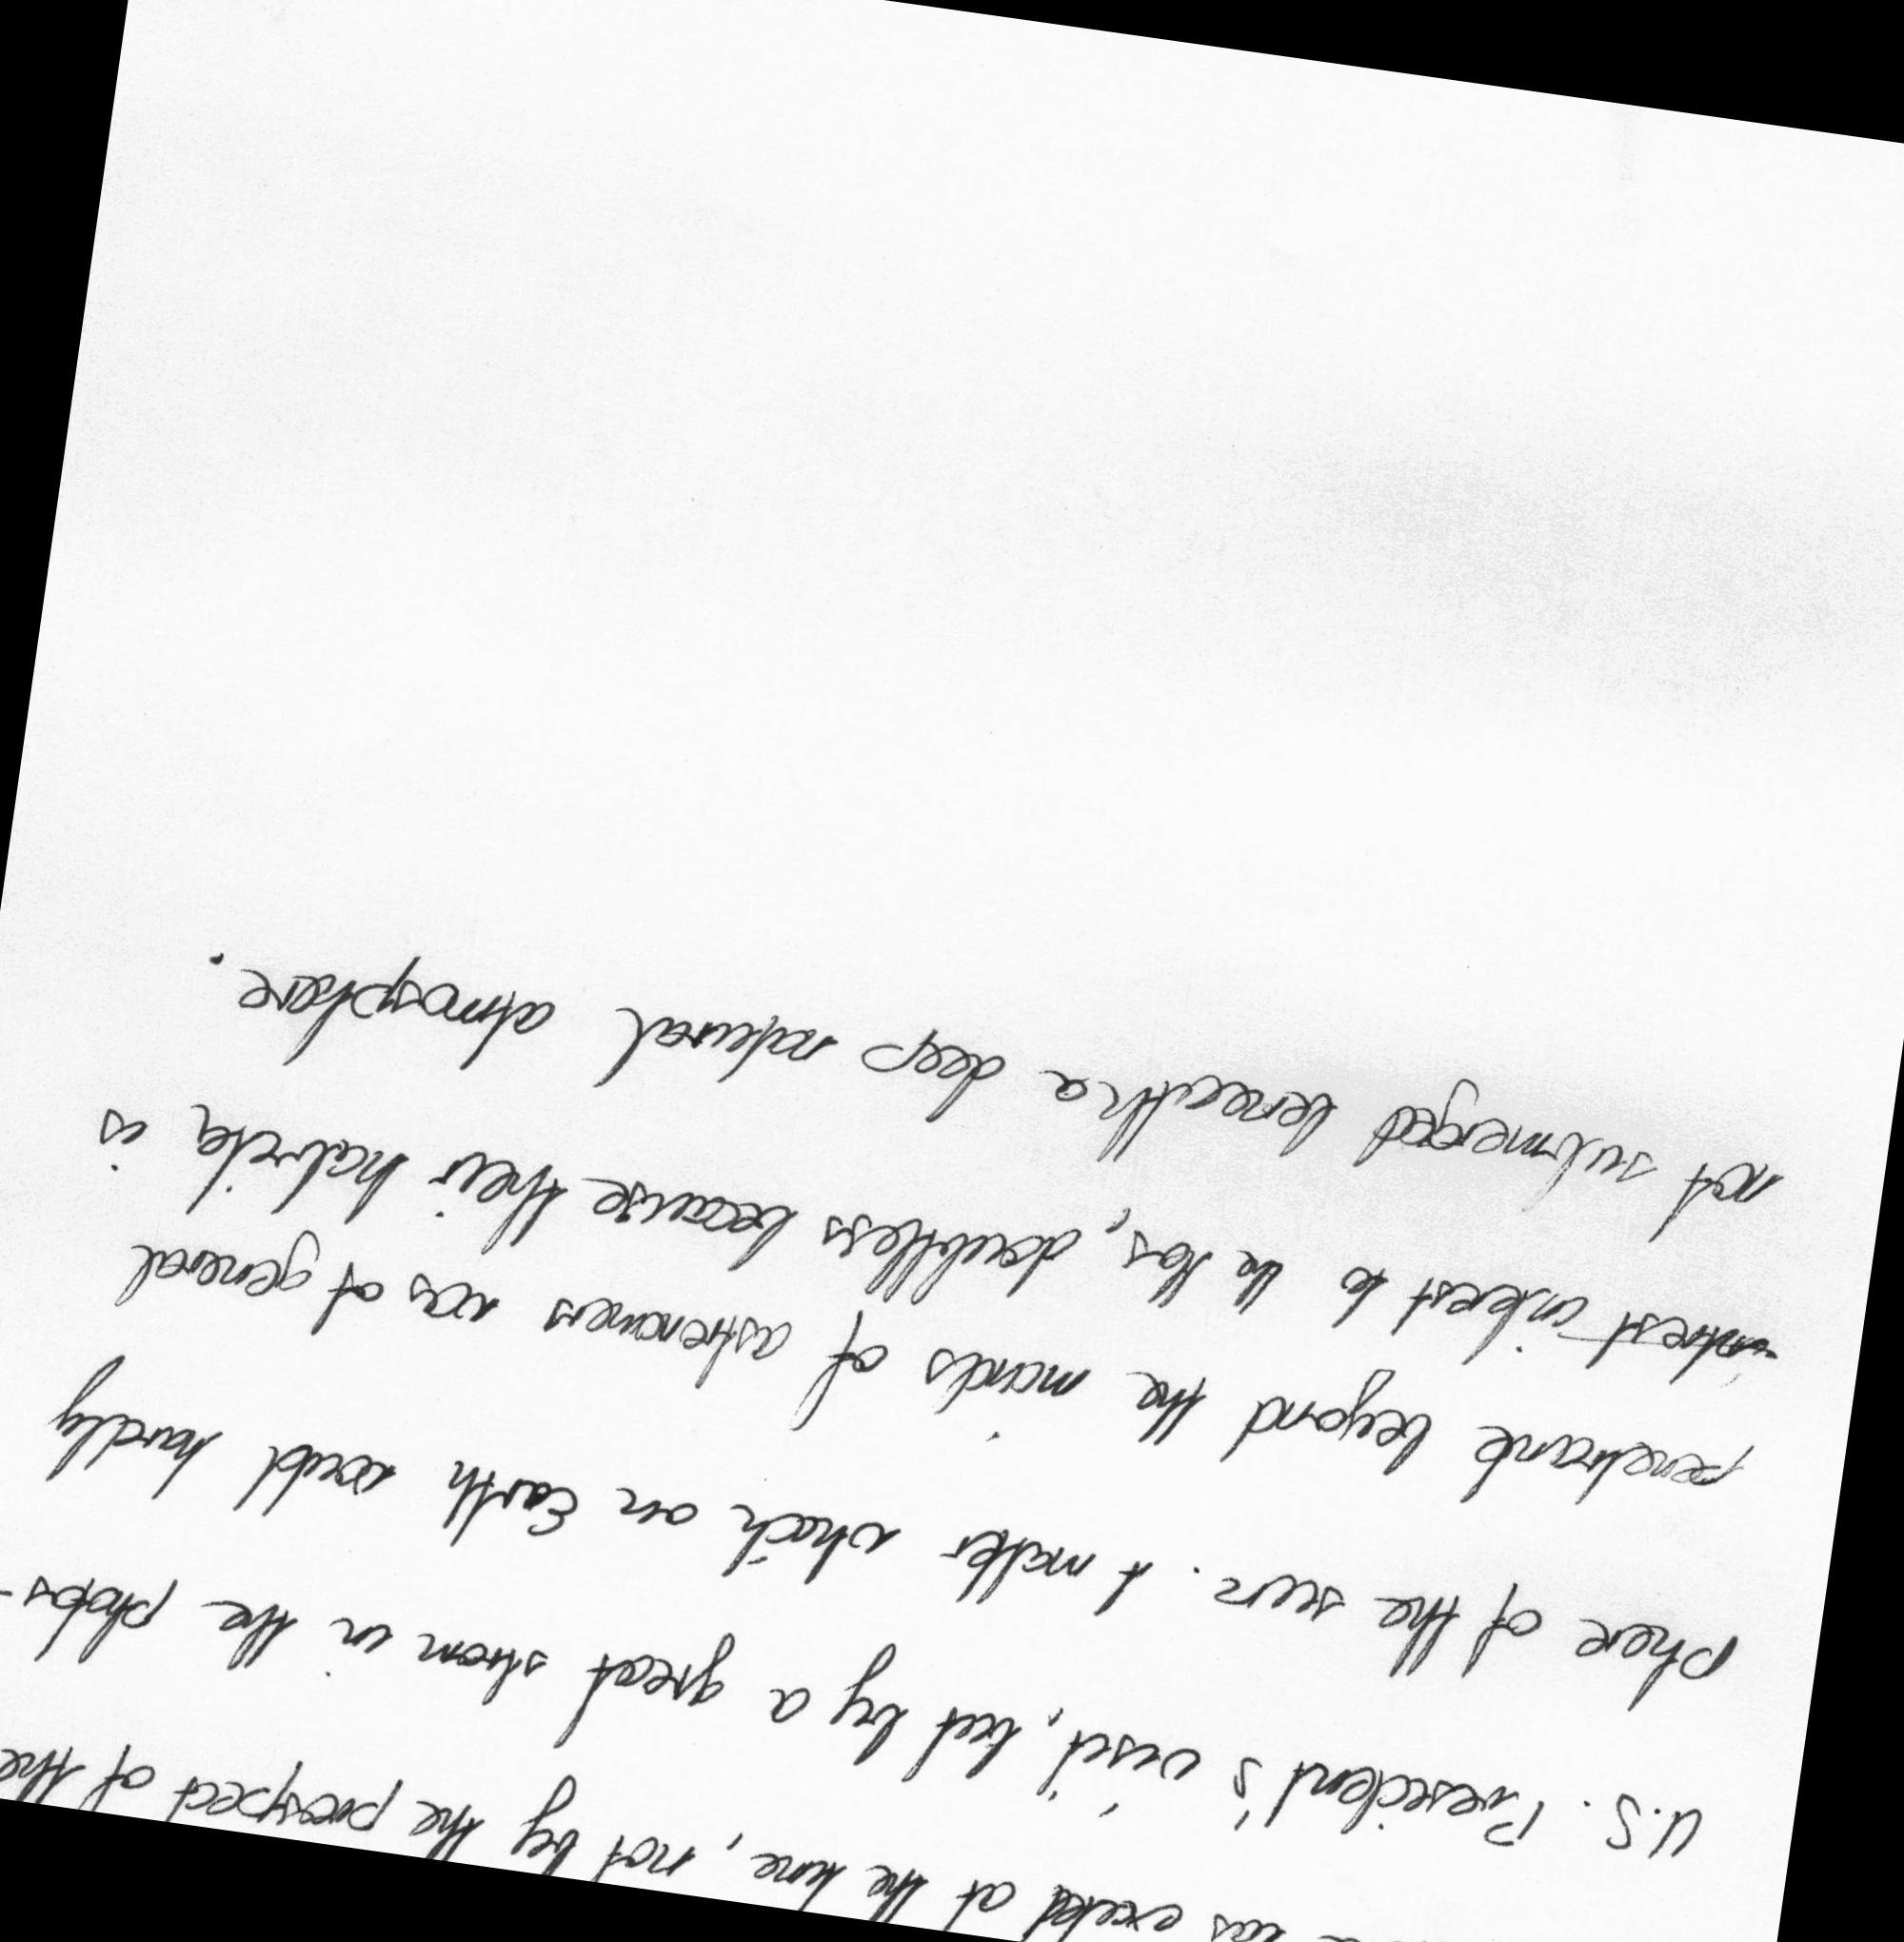 was excited at the time, not by the prospect of the
U.S. President's visit, but by a great strom in the photos-
phere of the sun. A matter which on Earth would hardly
penetrante beyond the minds of astronomers was of general
intrest interest to the
doubtless because their habitat, is
not submerged beneath a deep natural atmosphere.